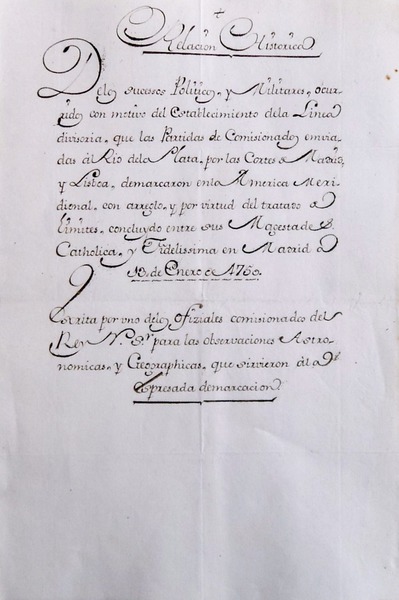 Relacion Historica
De los sucesos Politicos, y Militares, ocur-
ridos con motivo del Establecimiento de la Linea
divisoria, que las Partidas de Comisionados envia-
das àl Rio de la Plata, por las Cortes de Madrid,
y Lisboa, demarcaron en la America Meri-
dional, con arreglo, y por virtud del tratado de
limites, concluydo entre sus Magestades
Catholica, y Fidelissima en Madrid a
de Enero de 1750.
Escrita por uno de los ofiziales comisionados del
Rey N.º S.r para las observaciones Astro-
nomicas, y Geographicas, que sirvieron à la
espresada demarcacion